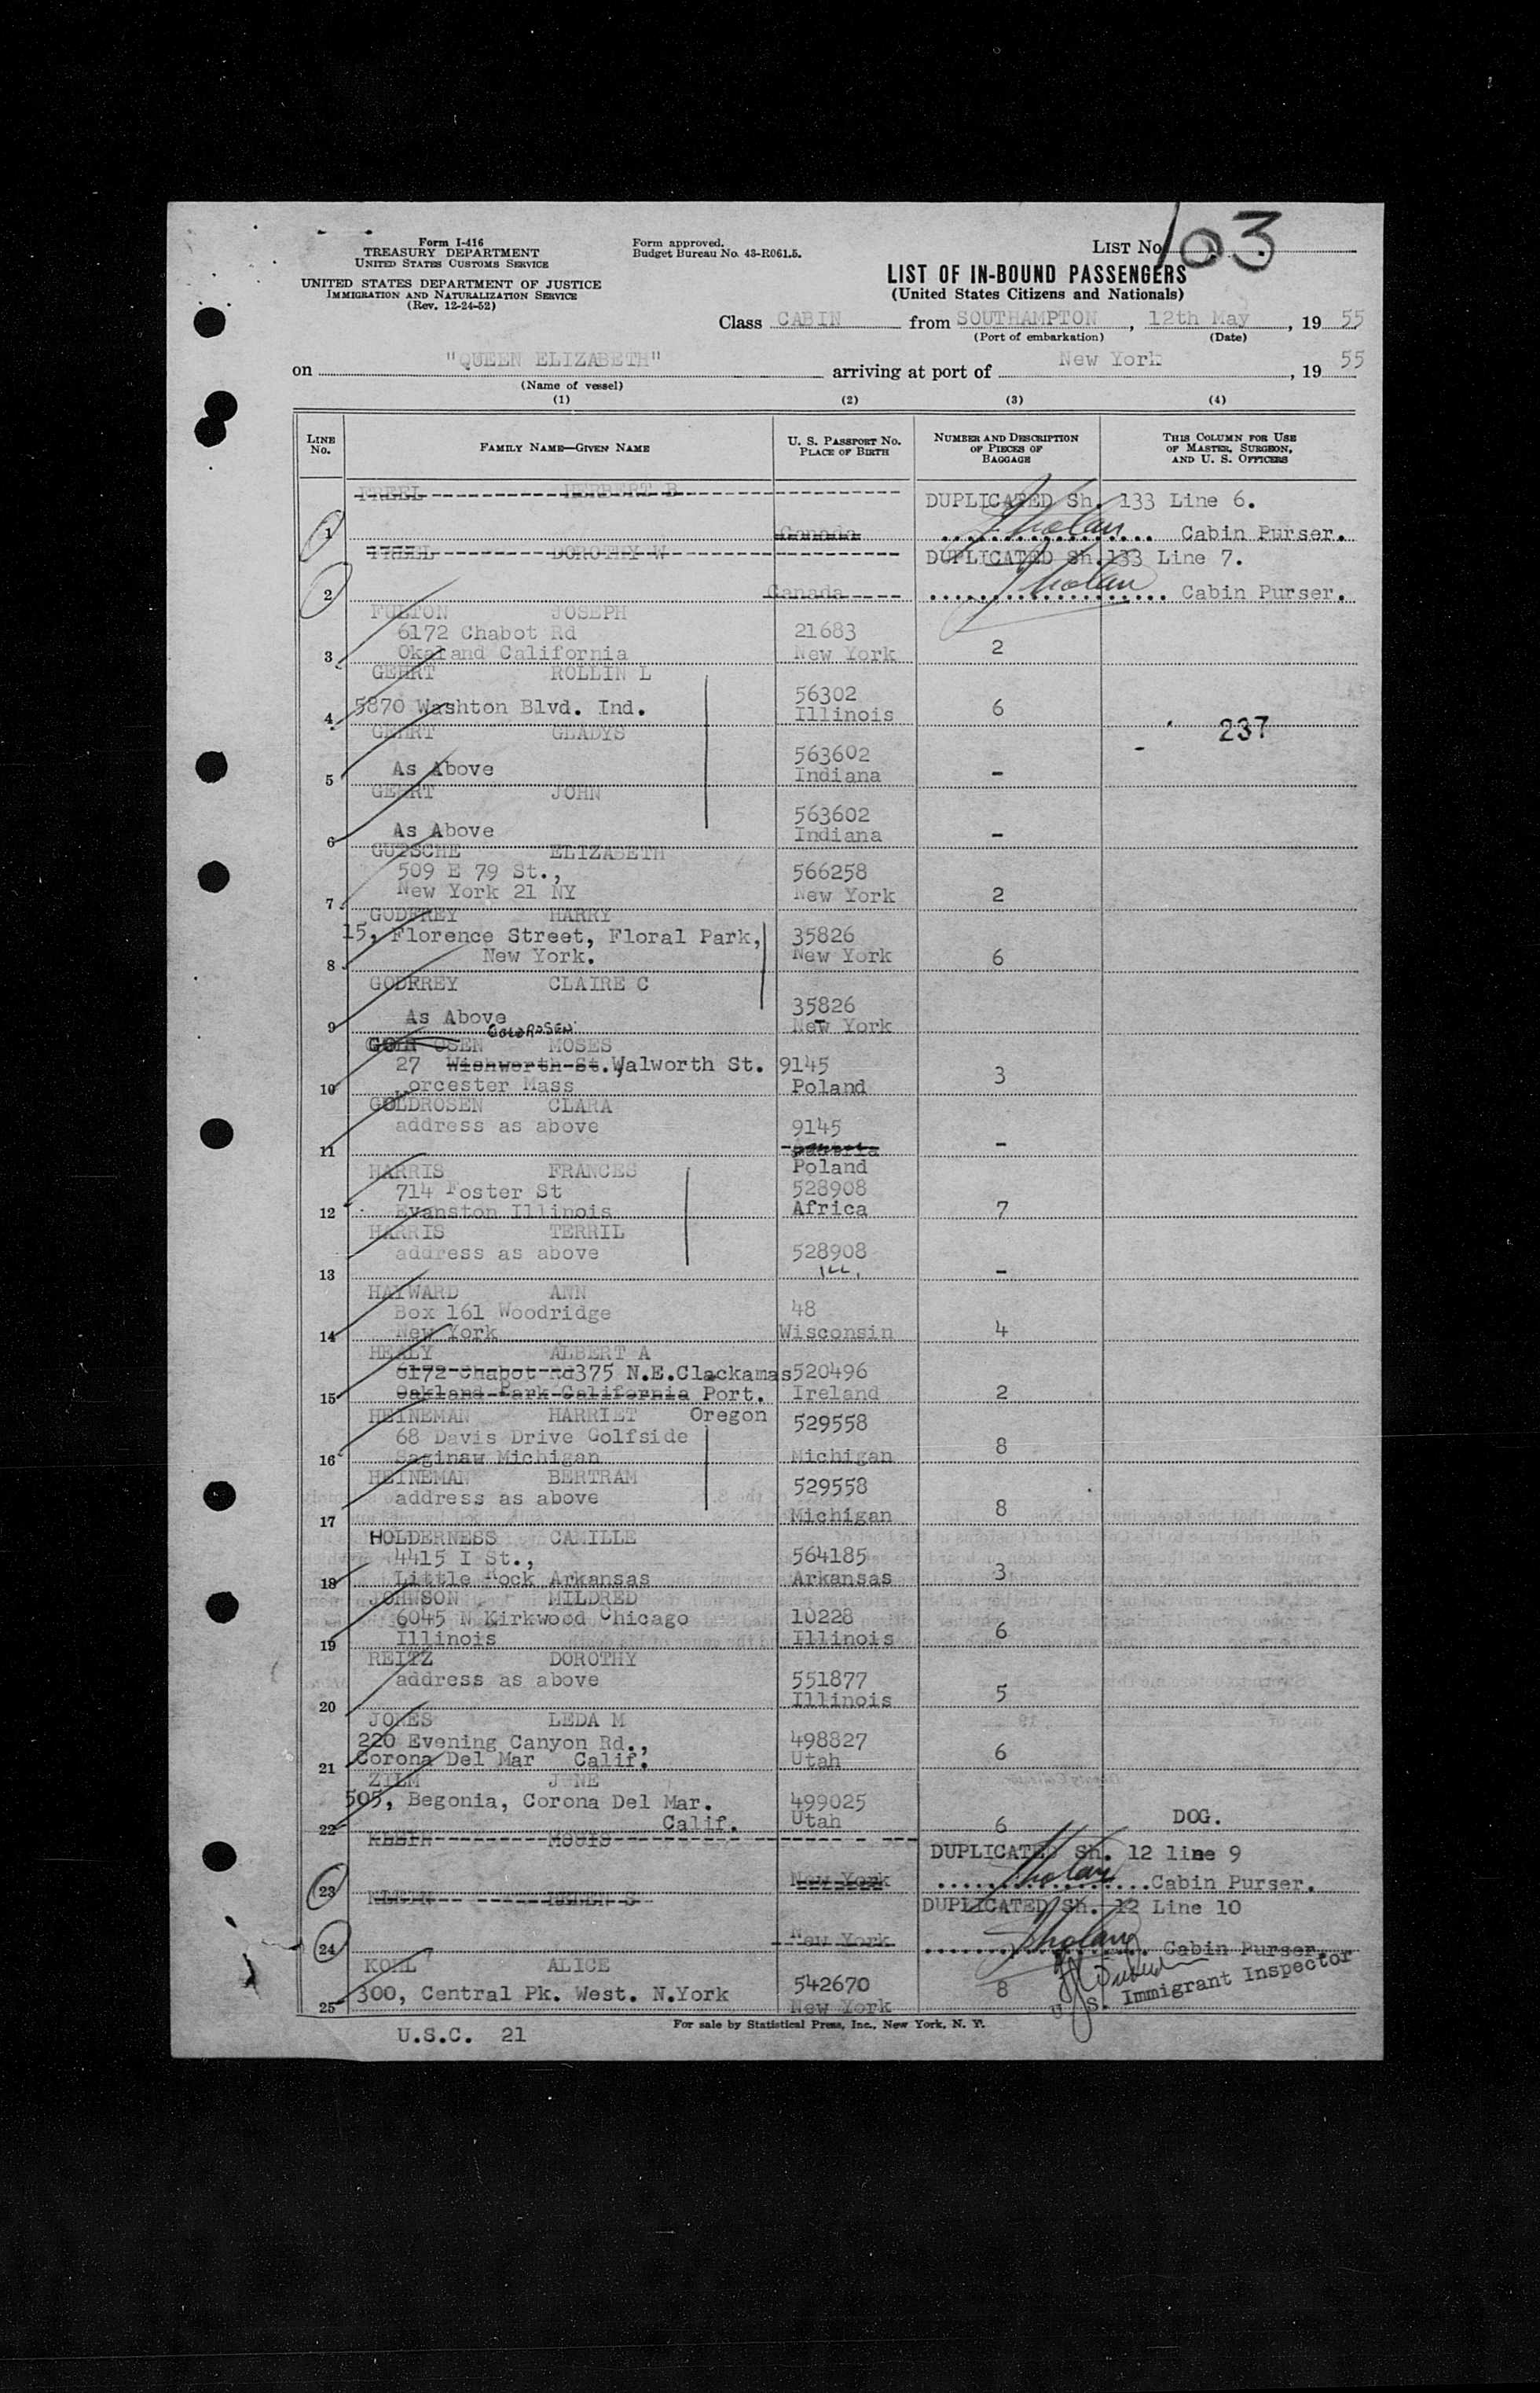 Form I-416
TREASURY DEPARTMENT
UNITED STATES CUSTOMS SERVICE
UNITED STATES DEPARTMENT OF JUSTICE
IMMIGRATION AND NATURALIZATION SERVICE
(Rev. 12-24-52)
Form approved.
Budget Bureau No. 43-R061.5.
LIST No. 103
LIST OF IN-BOUND PASSENGERS
(United States Citizens and Nationals)
Class CABIN from SOUTHAMPTON, 12th May, 19 55
(Port of embarkation) (Date)
on "QUEEN ELIZABETH" arriving at port of New York, 19 55
(Name of vessel)
(1) (2) (3) (4)
LINE No. FAMILY NAME—GIVEN NAME U. S. PASSPORT No. PLACE OF BIRTH NUMBER AND DESCRIPTION OF PIECES OF BAGGAGE THIS COLUMN FOR USE OF MASTER, SURGEON, AND U. S. OFFICERS
HERBERT B DUPLICATED Sh. 133 Line 6.
1 Canada Cabin Purser.
DOROTHY W DUPLICATED Sh. 133 Line 7.
2 Canada Cabin Purser.
FULTON JOSEPH
6172 Chabot Rd 21683
3 Okaland California New York 2
GEHRT ROLLIN L
56302
4 5870 Washton Blvd. Ind. Illinois 6
237
GEHRT GLADYS
563602
5 As Above Indiana -
GEHRT JOHN
563602
6 As Above Indiana -
GUTSCHE ELIZABETH
509 E 79 St., 566258
7 New York 21 NY New York 2
GODFREY HARRY
15, Florence Street, Floral Park, 35826
8 New York. New York 6
GODFREY CLAIRE C
35826
9 As Above New York
GOLDROSEN
OSEN MOSES
27 Wishworth St. Walworth St. 9145
10 orcester Mass Poland 3
GOLDROSEN CLARA
address as above 9145
11 -
Poland
HARRIS FRANCES
714 Foster St 528908
12 Evanston Illinois Africa 7
HARRIS TERRIL
address as above 528908
13 ILL. -
HAYWARD ANN
Box 161 Woodridge 48
14 New York Wisconsin 4
HEALY ALBERT A
6172 Chabot Rd 375 N.E.Clackamas 520496
15 Oakland Park California Port. Ireland 2
Oregon
HEINEMAN HARRIET 529558
68 Davis Drive Golfside
16 Saginaw Michigan Michigan 8
HEINEMAN BERTRAM
address as above 529558
17 Michigan 8
HOLDERNESS CAMILLE
4415 I St., 564185
18 Little Rock Arkansas Arkansas 3
JOHNSON MILDRED
6045 N Kirkwood Chicago 10228
19 Illinois Illinois 6
REITZ DOROTHY
address as above 551877
20 Illinois 5
JONES LEDA M
220 Evening Canyon Rd., 498827
21 Corona Del Mar Calif. Utah 6
ZILM JUNE
505, Begonia, Corona Del Mar. 499025
22 Calif. Utah 6 DOG.
DUPLICATED Sh. 12 line 9
23 New York Cabin Purser.
DUPLICATED Sh. 12 Line 10
24 New York Cabin Purser.
KOHL ALICE
300, Central Pk. West. N.York 542670
25 New York 8
U. S. Immigrant Inspector
For sale by Statistical Press, Inc., New York, N. Y.
U.S.C. 21